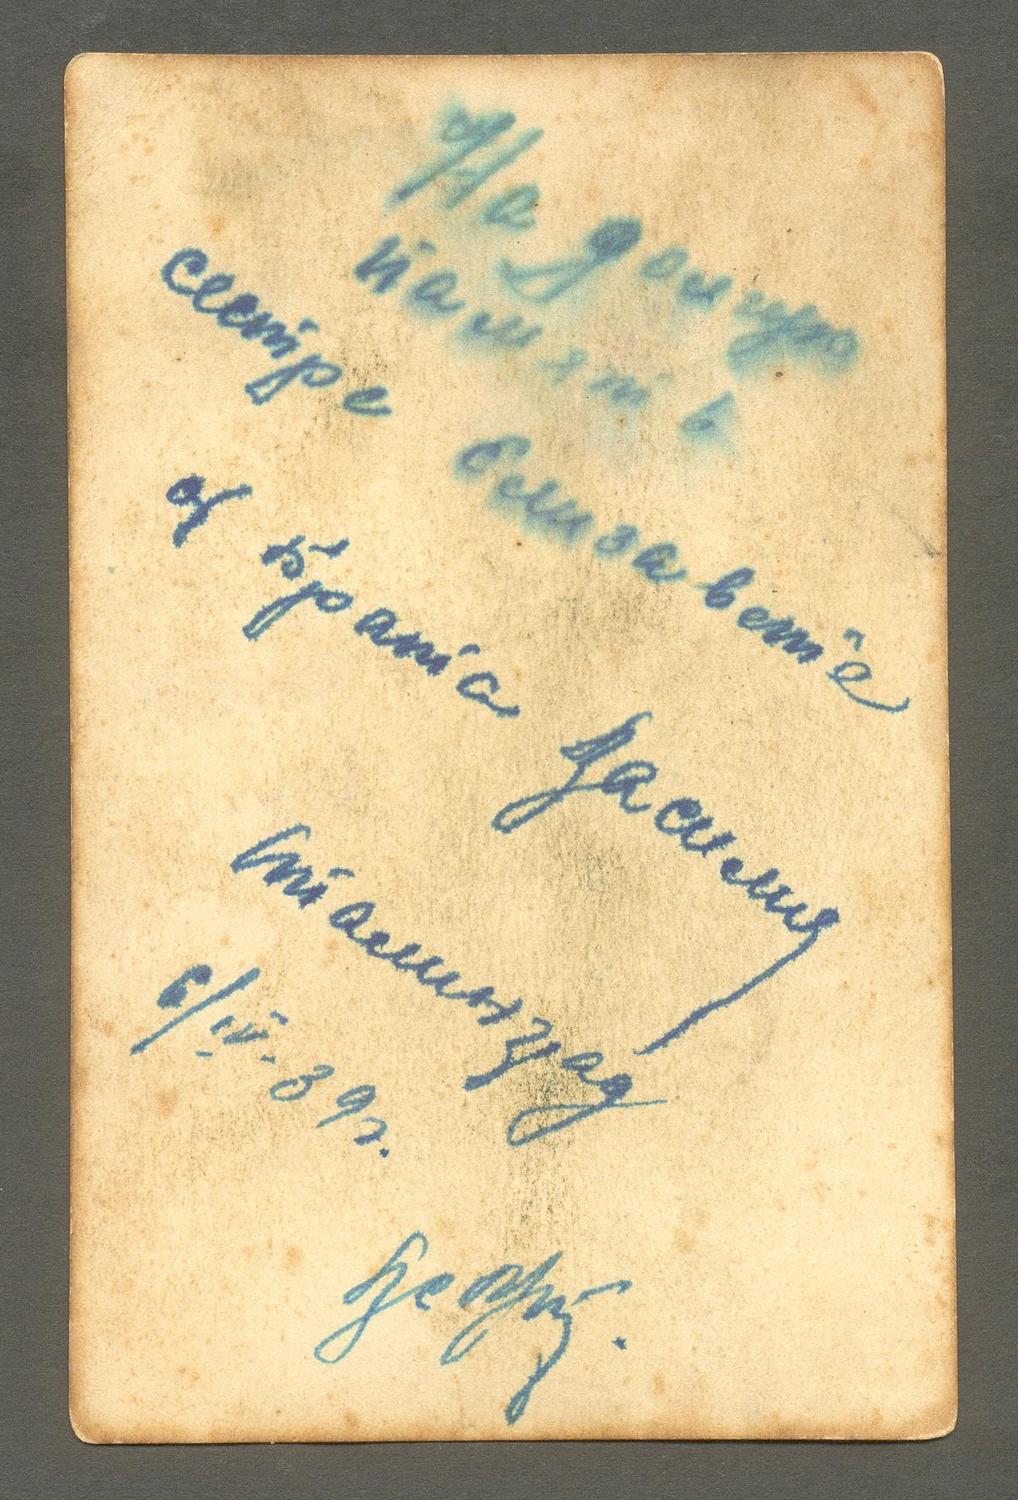 На долгую
память
сестре Елизавете
от брата Василия
Сталинград
6/IV-39г.